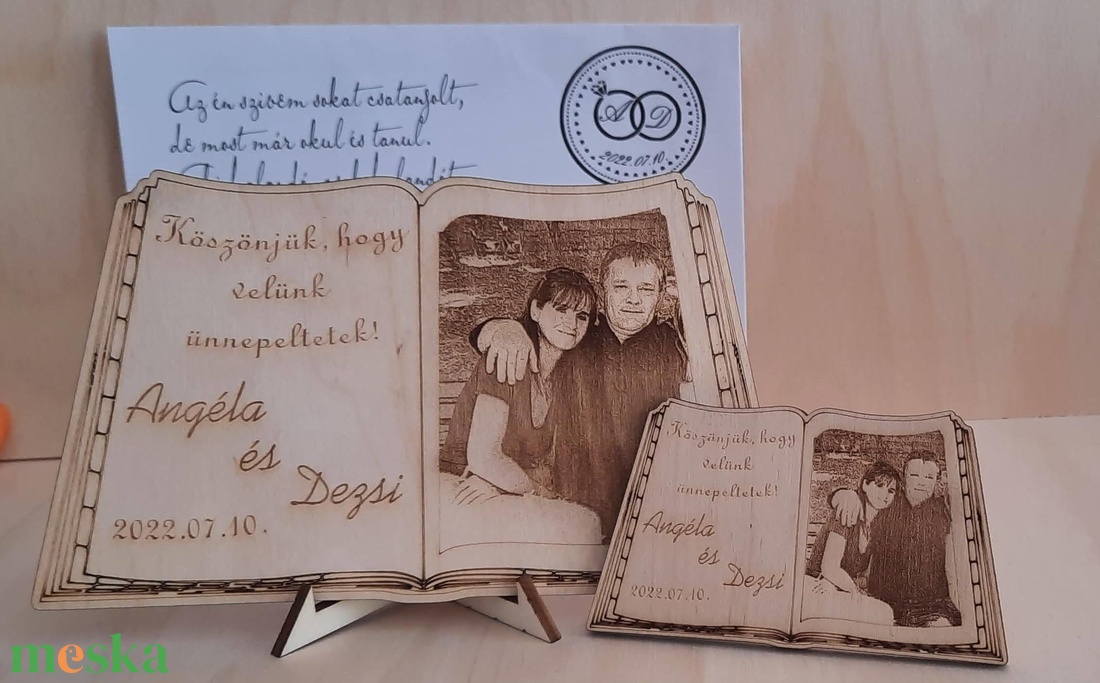 Az én szívem sokat csatangolt,
de most már okul és tanul.
A D
2022.07.10.
Köszönjük, hogy
velünk
ünnepeltetek!
Angéla
és
Dezsi
2022.07.10.
Köszönjük, hogy
velünk
ünnepeltetek!
Angéla
és
Dezsi
2022.07.10.
meska